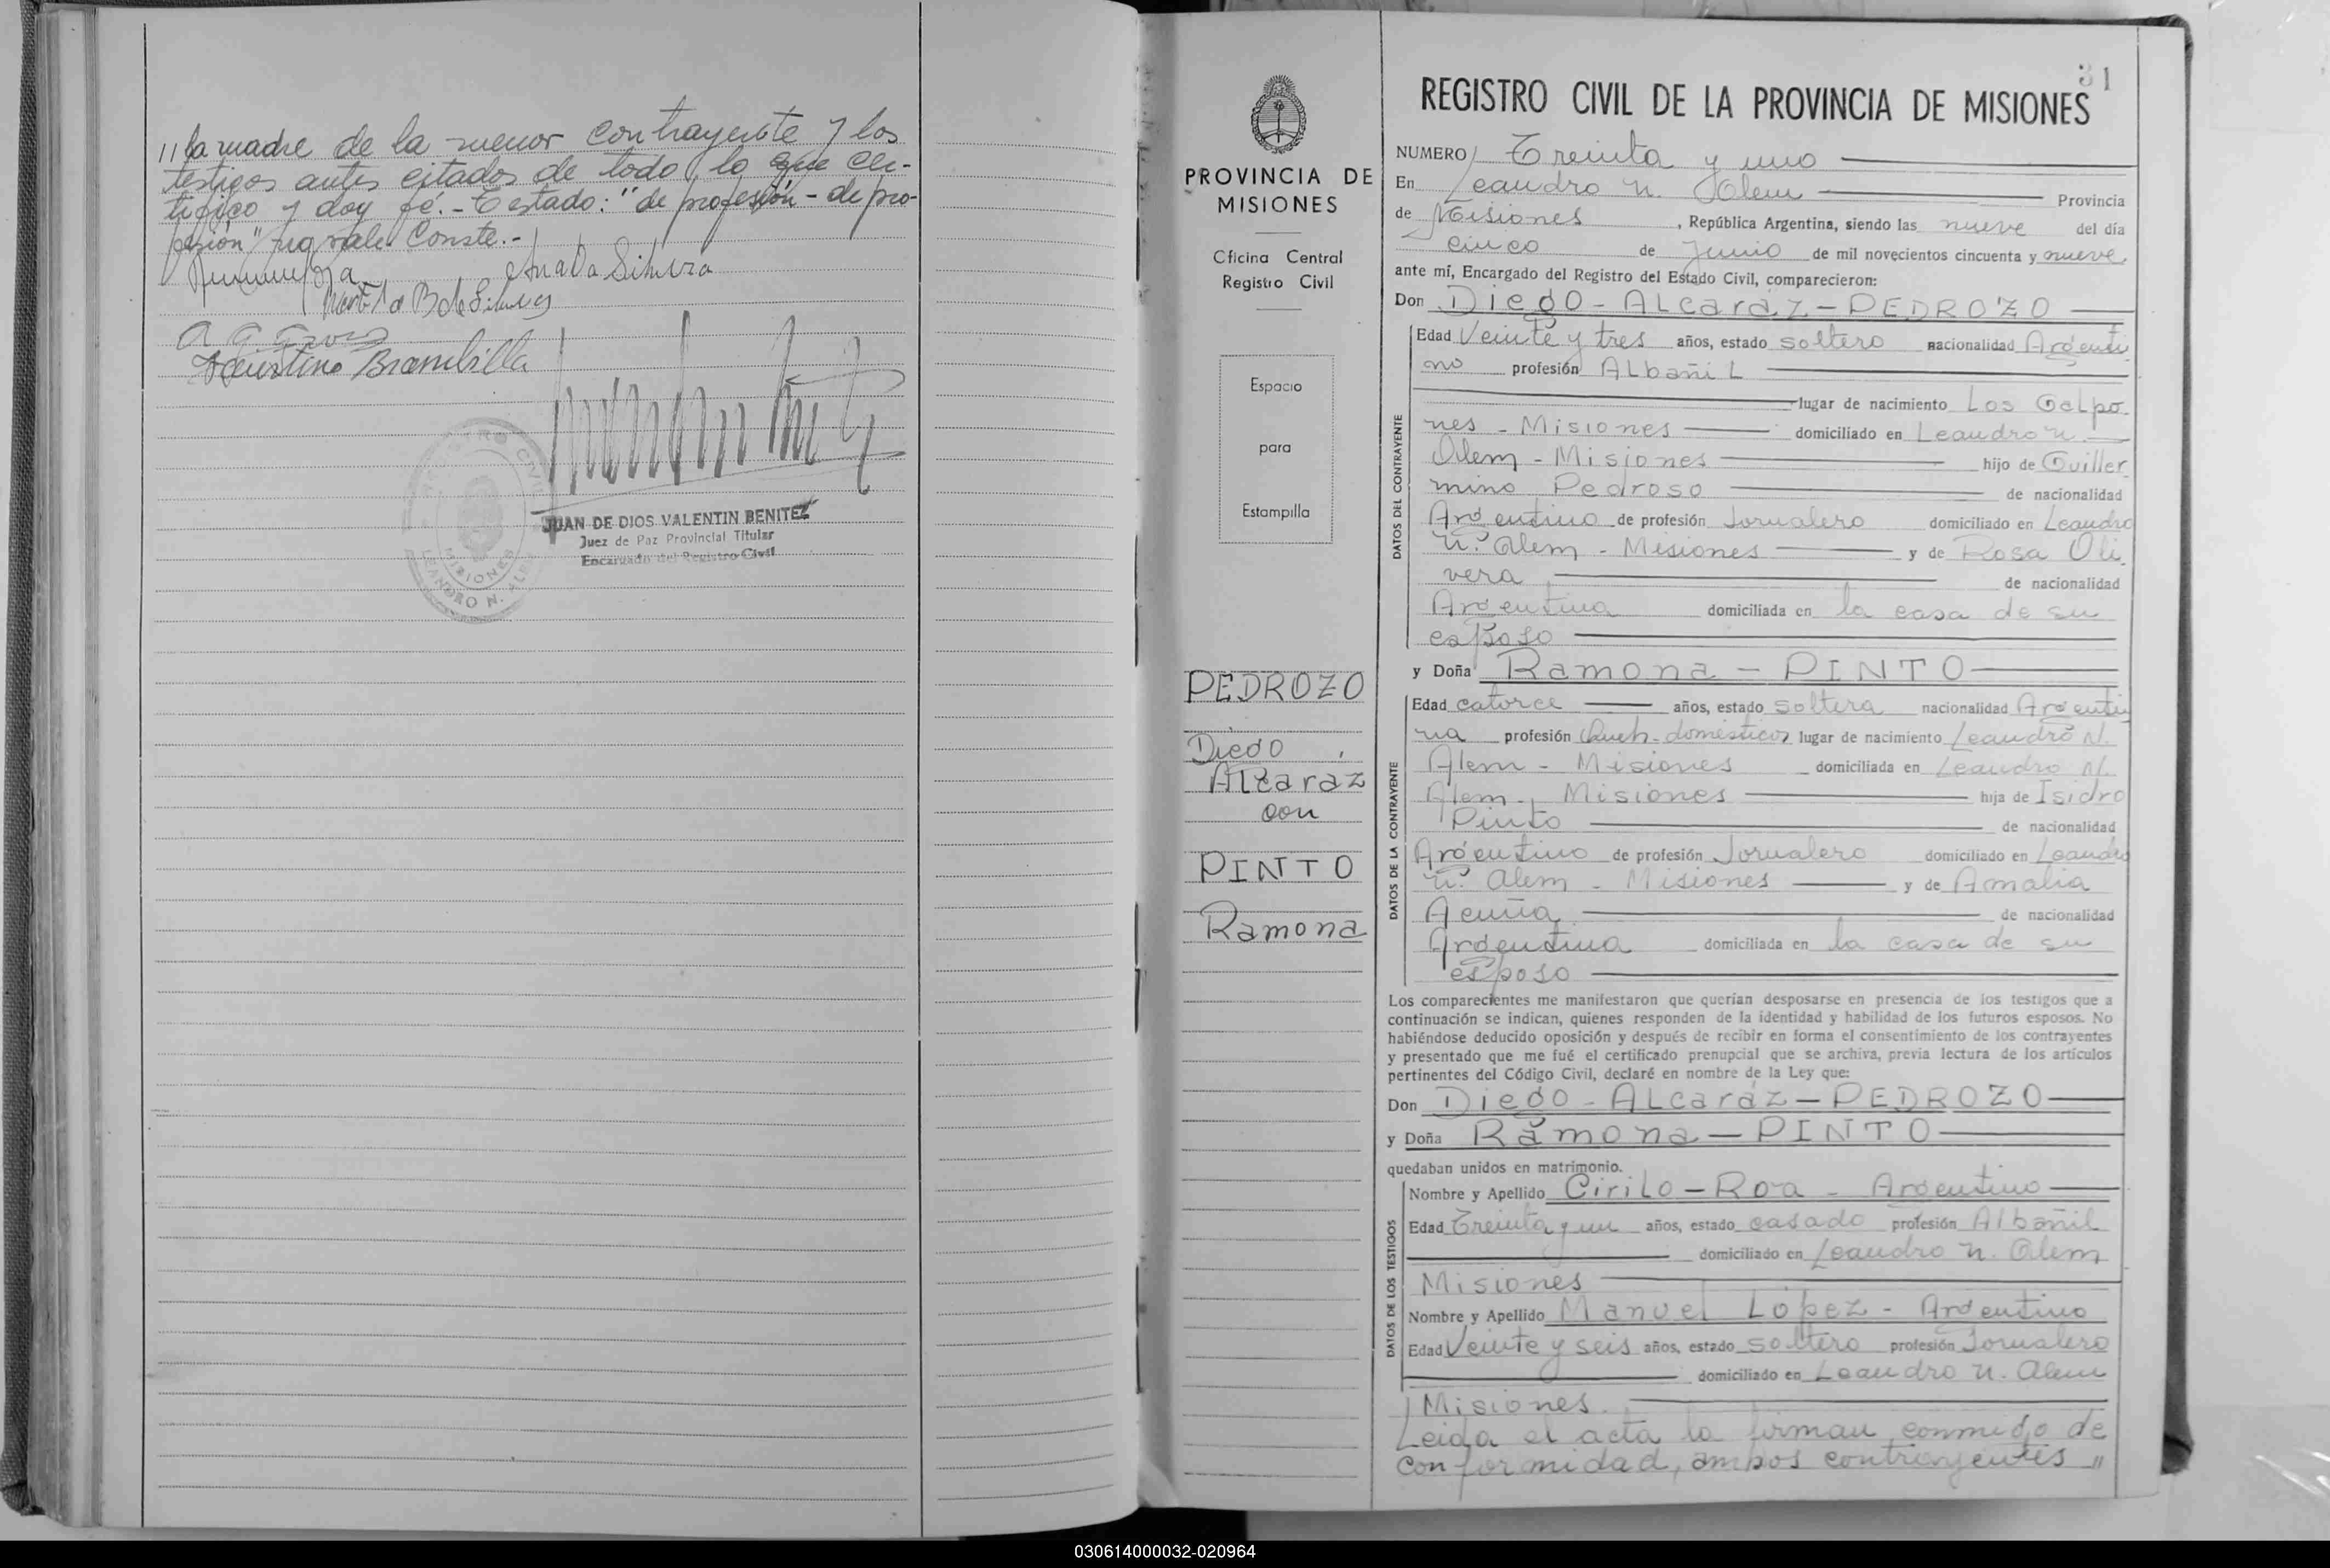 // la madre de la menor contrayente y los
testigos antes citados de todo lo que cer-
tifico y doy fé.- Testado: "de profesión - de pro-
fesión" no vale. Conste.-
Ana Da Silvera
Agustino Brambilla
REGISTRO CIVIL
MISIONES
LEANDRO N. ALEM
JUAN DE DIOS VALENTIN BENITEZ
Juez de Paz Provincial Titular
Encargado del Registro Civil
PROVINCIA DE
MISIONES
Oficina Central
Registro Civil
Espacio
para
Estampilla
PEDROZO
Diego
Alcaraz
con
PINTO
Ramona
31
REGISTRO CIVIL DE LA PROVINCIA DE MISIONES
NUMERO Treinta y uno
En Leandro N. Alem Provincia
de Misiones, República Argentina, siendo las nueve del día
cinco de Junio de mil novecientos cincuenta y nueve,
ante mí, Encargado del Registro del Estado Civil, comparecieron:
Don Diego - ALcaraz - PEDROZO
DATOS DEL CONTRAYENTE
Edad Veinte y tres años, estado soltero nacionalidad Argenti
no profesión ALbañiL
lugar de nacimiento Los Galpo-
nes - Misiones domiciliado en Leandro N.
Alem - Misiones hijo de Guiller
mino Pedroso de nacionalidad
Argentino de profesión Jornalero domiciliado en Leandro
N. Alem - Misiones y de Rosa Oli
vera de nacionalidad
Argentina domiciliada en la casa de su
esposo
y Doña Ramona - PINTO
DATOS DE LA CONTRAYENTE
Edad catorce años, estado soltera nacionalidad Argenti
na profesión Queh-domésticos lugar de nacimiento Leandro N.
Alem - Misiones domiciliada en Leandro N.
Alem - Misiones hija de Isidro
Pinto de nacionalidad
Argentino de profesión Jornalero domiciliado en Leandro
N. Alem - Misiones y de Amalia
Acuña de nacionalidad
Argentina domiciliada en la casa de su
esposo
Los comparecientes me manifestaron que querían desposarse en presencia de los testigos que a
continuación se indican, quienes responden de la identidad y habilidad de los futuros esposos. No
habiéndose deducido oposición y después de recibir en forma el consentimiento de los contrayentes
y presentado que me fué el certificado prenupcial que se archiva, previa lectura de los artículos
pertinentes del Código Civil, declaré en nombre de la Ley que:
Don Diego - ALcaráz - PEDROZO
y Doña Ramona - PINTO
quedaban unidos en matrimonio.
DATOS DE LOS TESTIGOS
Nombre y Apellido CiriLo - Roa - Argentino
Edad Treinta y un años, estado casado profesión Albañil
domiciliado en Leandro N. Alem
Misiones
Nombre y Apellido Manuel López - Argentino
Edad Veinte y seis años, estado soltero profesión Jornalero
domiciliado en Leandro N. Alem
Misiones.
Leida el acta la firman conmigo de
conformidad, ambos contrayentes //
030614000032-020964